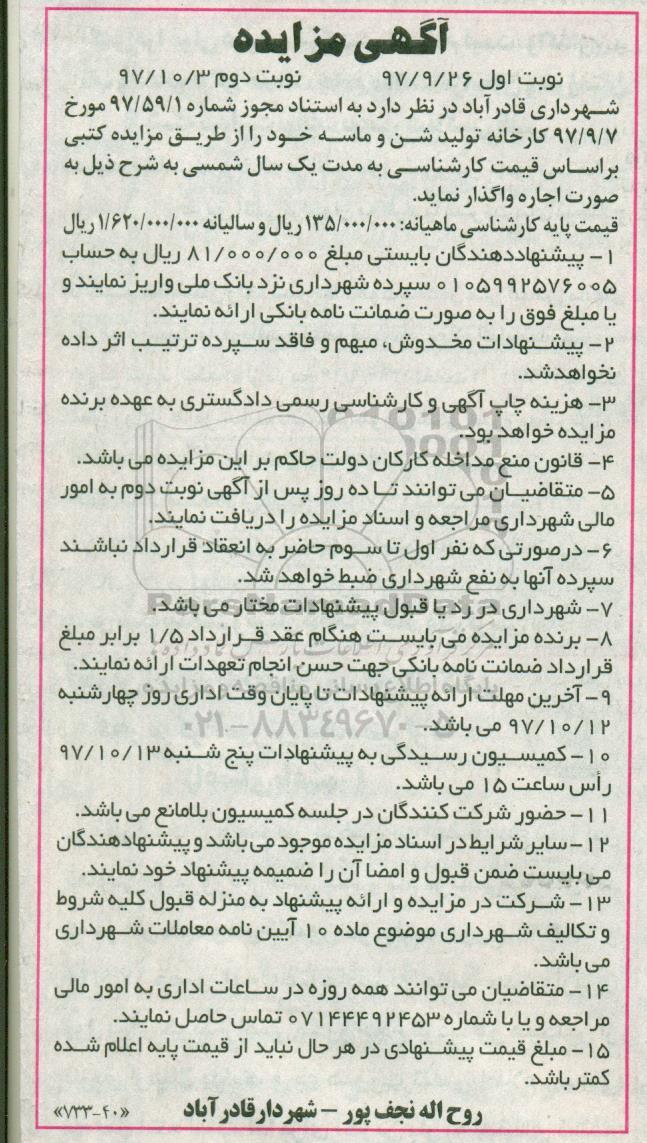 آگهی مزایده
نوبت اول ۹۷/۹/۲۶ نوبت دوم ۹۷/۱۰/۳
شهرداری قادرآباد در نظر دارد به استناد مجوز شماره ۹۷/۵۹/۱ مورخ
۹۷/۹/۷ کارخانه تولید شن و ماسه خود را از طریق مزایده کتبی
براساس قیمت کارشناسی به مدت یک سال شمسی به شرح ذیل به
صورت اجاره واگذار نماید.
قیمت پایه کارشناسی ماهیانه: ۱۳۵/۰۰۰/۰۰۰ ریال و سالیانه ۱/۶۲۰/۰۰۰/۰۰۰ ریال
۱- پیشنهاددهندگان بایستی مبلغ ۸۱/۰۰۰/۰۰۰ ریال به حساب
۰۱۰۵۹۹۲۵۷۶۰۰۵ سپرده شهرداری نزد بانک ملی واریز نمایند و
یا مبلغ فوق را به صورت ضمانت نامه بانکی ارائه نمایند.
۲- پیشنهادات مخدوش، مبهم و فاقد سپرده ترتیب اثر داده
نخواهدشد.
۳- هزینه چاپ آگهی و کارشناسی رسمی دادگستری به عهده برنده
مزایده خواهد بود.
۴- قانون منع مداخله کارکان دولت حاکم بر این مزایده می باشد.
۵- متقاضیان می توانند تا ده روز پس از آگهی نوبت دوم به امور
مالی شهرداری مراجعه و اسناد مزایده را دریافت نمایند.
۶- درصورتی که نفر اول تا سوم حاضر به انعقاد قرارداد نباشند
سپرده آنها به نفع شهرداری ضبط خواهد شد.
۷- شهرداری در رد یا قبول پیشنهادات مختار می باشد.
۸- برنده مزایده می بایست هنگام عقد قرارداد ۱/۵ برابر مبلغ
قرارداد ضمانت نامه بانکی جهت حسن انجام تعهدات ارائه نمایند.
۹- آخرین مهلت ارائه پیشنهادات تا پایان وقت اداری روز چهارشنبه
۹۷/۱۰/۱۲ می باشد.
۰۲۱-۸۸۳۴۹۶۷۰-۵
۱۰- کمیسیون رسیدگی به پیشنهادات پنج شنبه ۹۷/۱۰/۱۳
رأس ساعت ۱۵ می باشد.
۱۱- حضور شرکت کنندگان در جلسه کمیسیون بلامانع می باشد.
۱۲- سایر شرایط در اسناد مزایده موجود می باشد و پیشنهادهندگان
می بایست ضمن قبول و امضا آن را ضمیمه پیشنهاد خود نمایند.
۱۳- شرکت در مزایده و ارائه پیشنهاد به منزله قبول کلیه شروط
و تکالیف شهرداری موضوع ماده ۱۰ آیین نامه معاملات شهرداری
می باشد.
۱۴- متقاضیان می توانند همه روزه در ساعات اداری به امور مالی
مراجعه و یا با شماره ۰۷۱۴۴۴۹۲۴۵۳ تماس حاصل نمایند.
۱۵- مبلغ قیمت پیشنهادی در هر حال نباید از قیمت پایه اعلام شده
کمتر باشد.
روح اله نجف پور – شهردار قادرآباد «۷۳۳-۴۰»